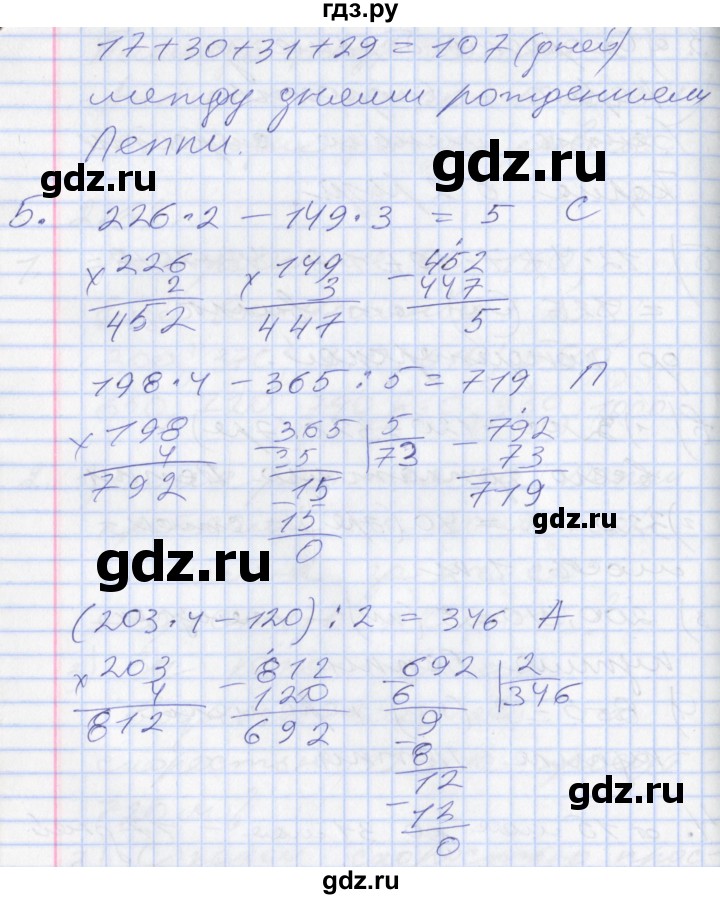 гдз.ру
17+30+31+29 = 107 (дней)
между днями рождениями
Пеппи.
gdz.ru
gdz.ru
5. 226·2 - 149·3 = 5 С
× 226 × 149 - 452
2 3 447
452 447 5
198·4 - 365 : 5 = 719 П
× 198 - 365 | 5 - 792
4 35 73 73
792 15 719
- 15
0
gdz.ru
gdz.ru
(203·4 - 120) : 2 = 346 А
× 203 - 812 - 692 | 2
4 120 6 346
812 692 9
- 8
12
- 12
0
gdz.ru
gdz.ru
gdz.ru